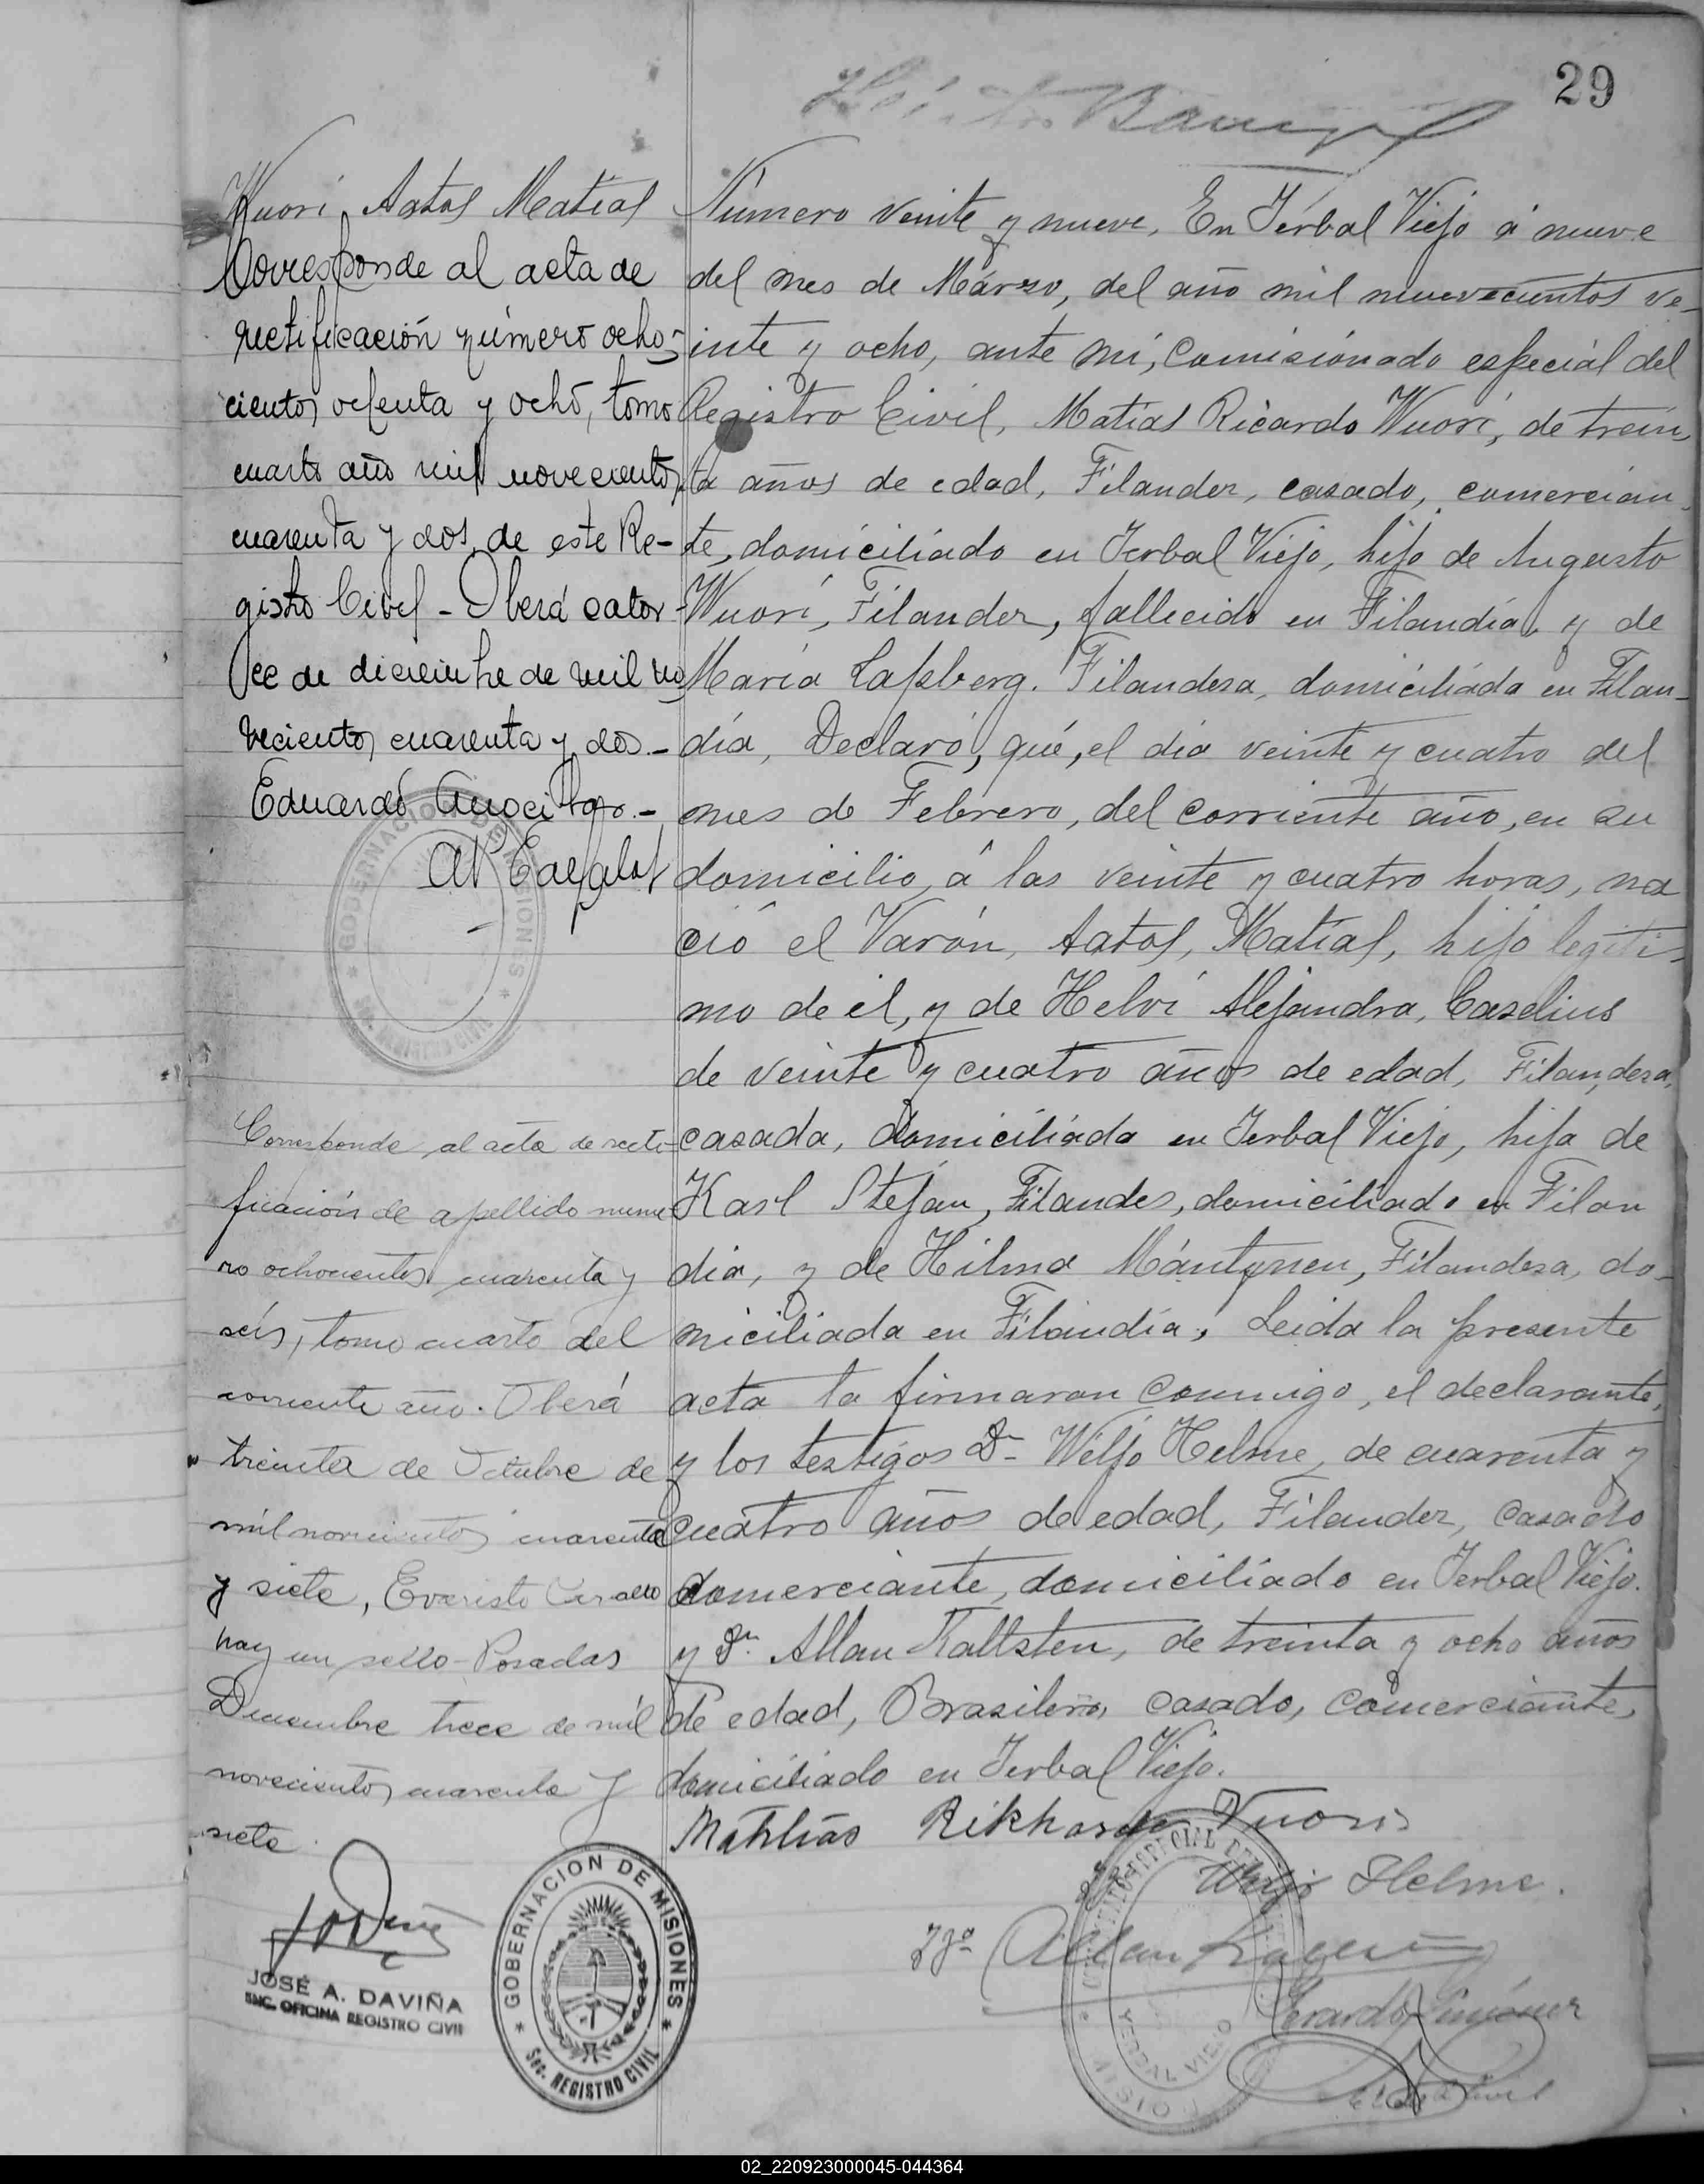 29
Wuori, Aatos Matías
Corresponde al acta de
rectificación número ocho-
cientos ochenta y ocho, tomo
cuarto año mil novecientos
cuarenta y dos de este Re-
gistro Civil - Oberá cator-
ce de diciembre de mil no
vecientos cuarenta y dos.-
Eduardo
Corresponde al acta de recti-
ficación de apellido nume
ro ochocientos cuarenta y
seis, tomo cuarto del
corriente año. Oberá
treinta de Octubre de
mil novecientos cuarenta
y siete, Evaristo
hay un sello - Posadas
Diciembre trece de mil
novecientos cuarenta y
siete.
JOSÉ A. DAVIÑA
ENC. OFICINA REGISTRO CIVIL
GOBERNACION DE MISIONES
Sec. REGISTRO CIVIL
Número veinte y nueve, En Yerbal Viejo á nueve
del mes de Márzo, del año mil nuevecientos ve-
inte y ocho, ante mí, Comisionado especial del
Registro Civil, Matías Ricardo Wuori, de trein
ta años de edad, Filandez, casado, comercian
te, domiciliado en Yerbal Viejo, hijo de Augusto
Wuori, Filandez, fallecido en Filandía, y de
María Lapberg. Filandesa, domiciliáda en Filan-
día, Declaró, qué, el día veinte y cuatro del
mes de Febrero, del corriente año, en su
domicilio, á las veinte y cuatro horas, na
ció el Varón, Aatos, Matías, hijo legíti-
mo de él, y de Helvi Alejandra, Caselius
de veinte y cuatro años de edad, Filandesa,
casada, domiciliáda en Yerbal Viejo, hija de
Karl Stefan, Filandes, domiciliado en Filan
día, y de Hilma Mántynen, Filandesa, do-
miciliada en Filandía, Leida la presente
acta la firmaron conmigo, el declarante,
y los testigos Dn Weljo Helme, de cuarenta y
cuatro años de edad, Filandez, casado
comerciante, domiciliádo en Yerbal Viejo.
y Dn. Allan Kallsten, de treinta y ocho años
de edad, Brasilero, casado, comerciante,
domiciliádo en Yerbal Viejo.
Mathias Rikhard Vuori
Weljo Helme.
Tgo Allan
Gerardo Jiménez